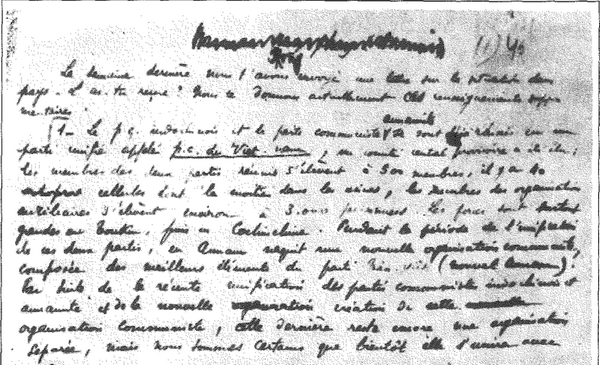 La semaine dernière nous t'avons envoyé une lettre sur la situation dans
pays. L'as-tu reçue ? Nous te donnons actuellement des renseignements supplé
mentaires.
annamite
1- Le p.c. indochinois et le parti communiste se sont réunis en un
parti unifié appelé p.c. du Viet nam, un comité central provisoire a été élu;
les membres des deux partis réunis s'élèvent à 500 membres, il y a 40
cellules dont la moitié dans les usines, les membres des organisations
auxiliaires s'élèvent environ à 3.000 Les forces sont
grandes au Tonkin, puis en Cochinchine. Pendant la période de l'unification
de ces deux partis, en Annam naquit une nouvelle organisation communiste,
composée des meilleurs éléments du parti Tân Việt (nouvel Annam).
Par suite de la récente unification des partis communistes indochinois et
annamite et de la nouvelle création de cette
organisation communiste, cette dernière reste encore une organisation
séparée, mais nous sommes certains que bientôt elle s'unira avec